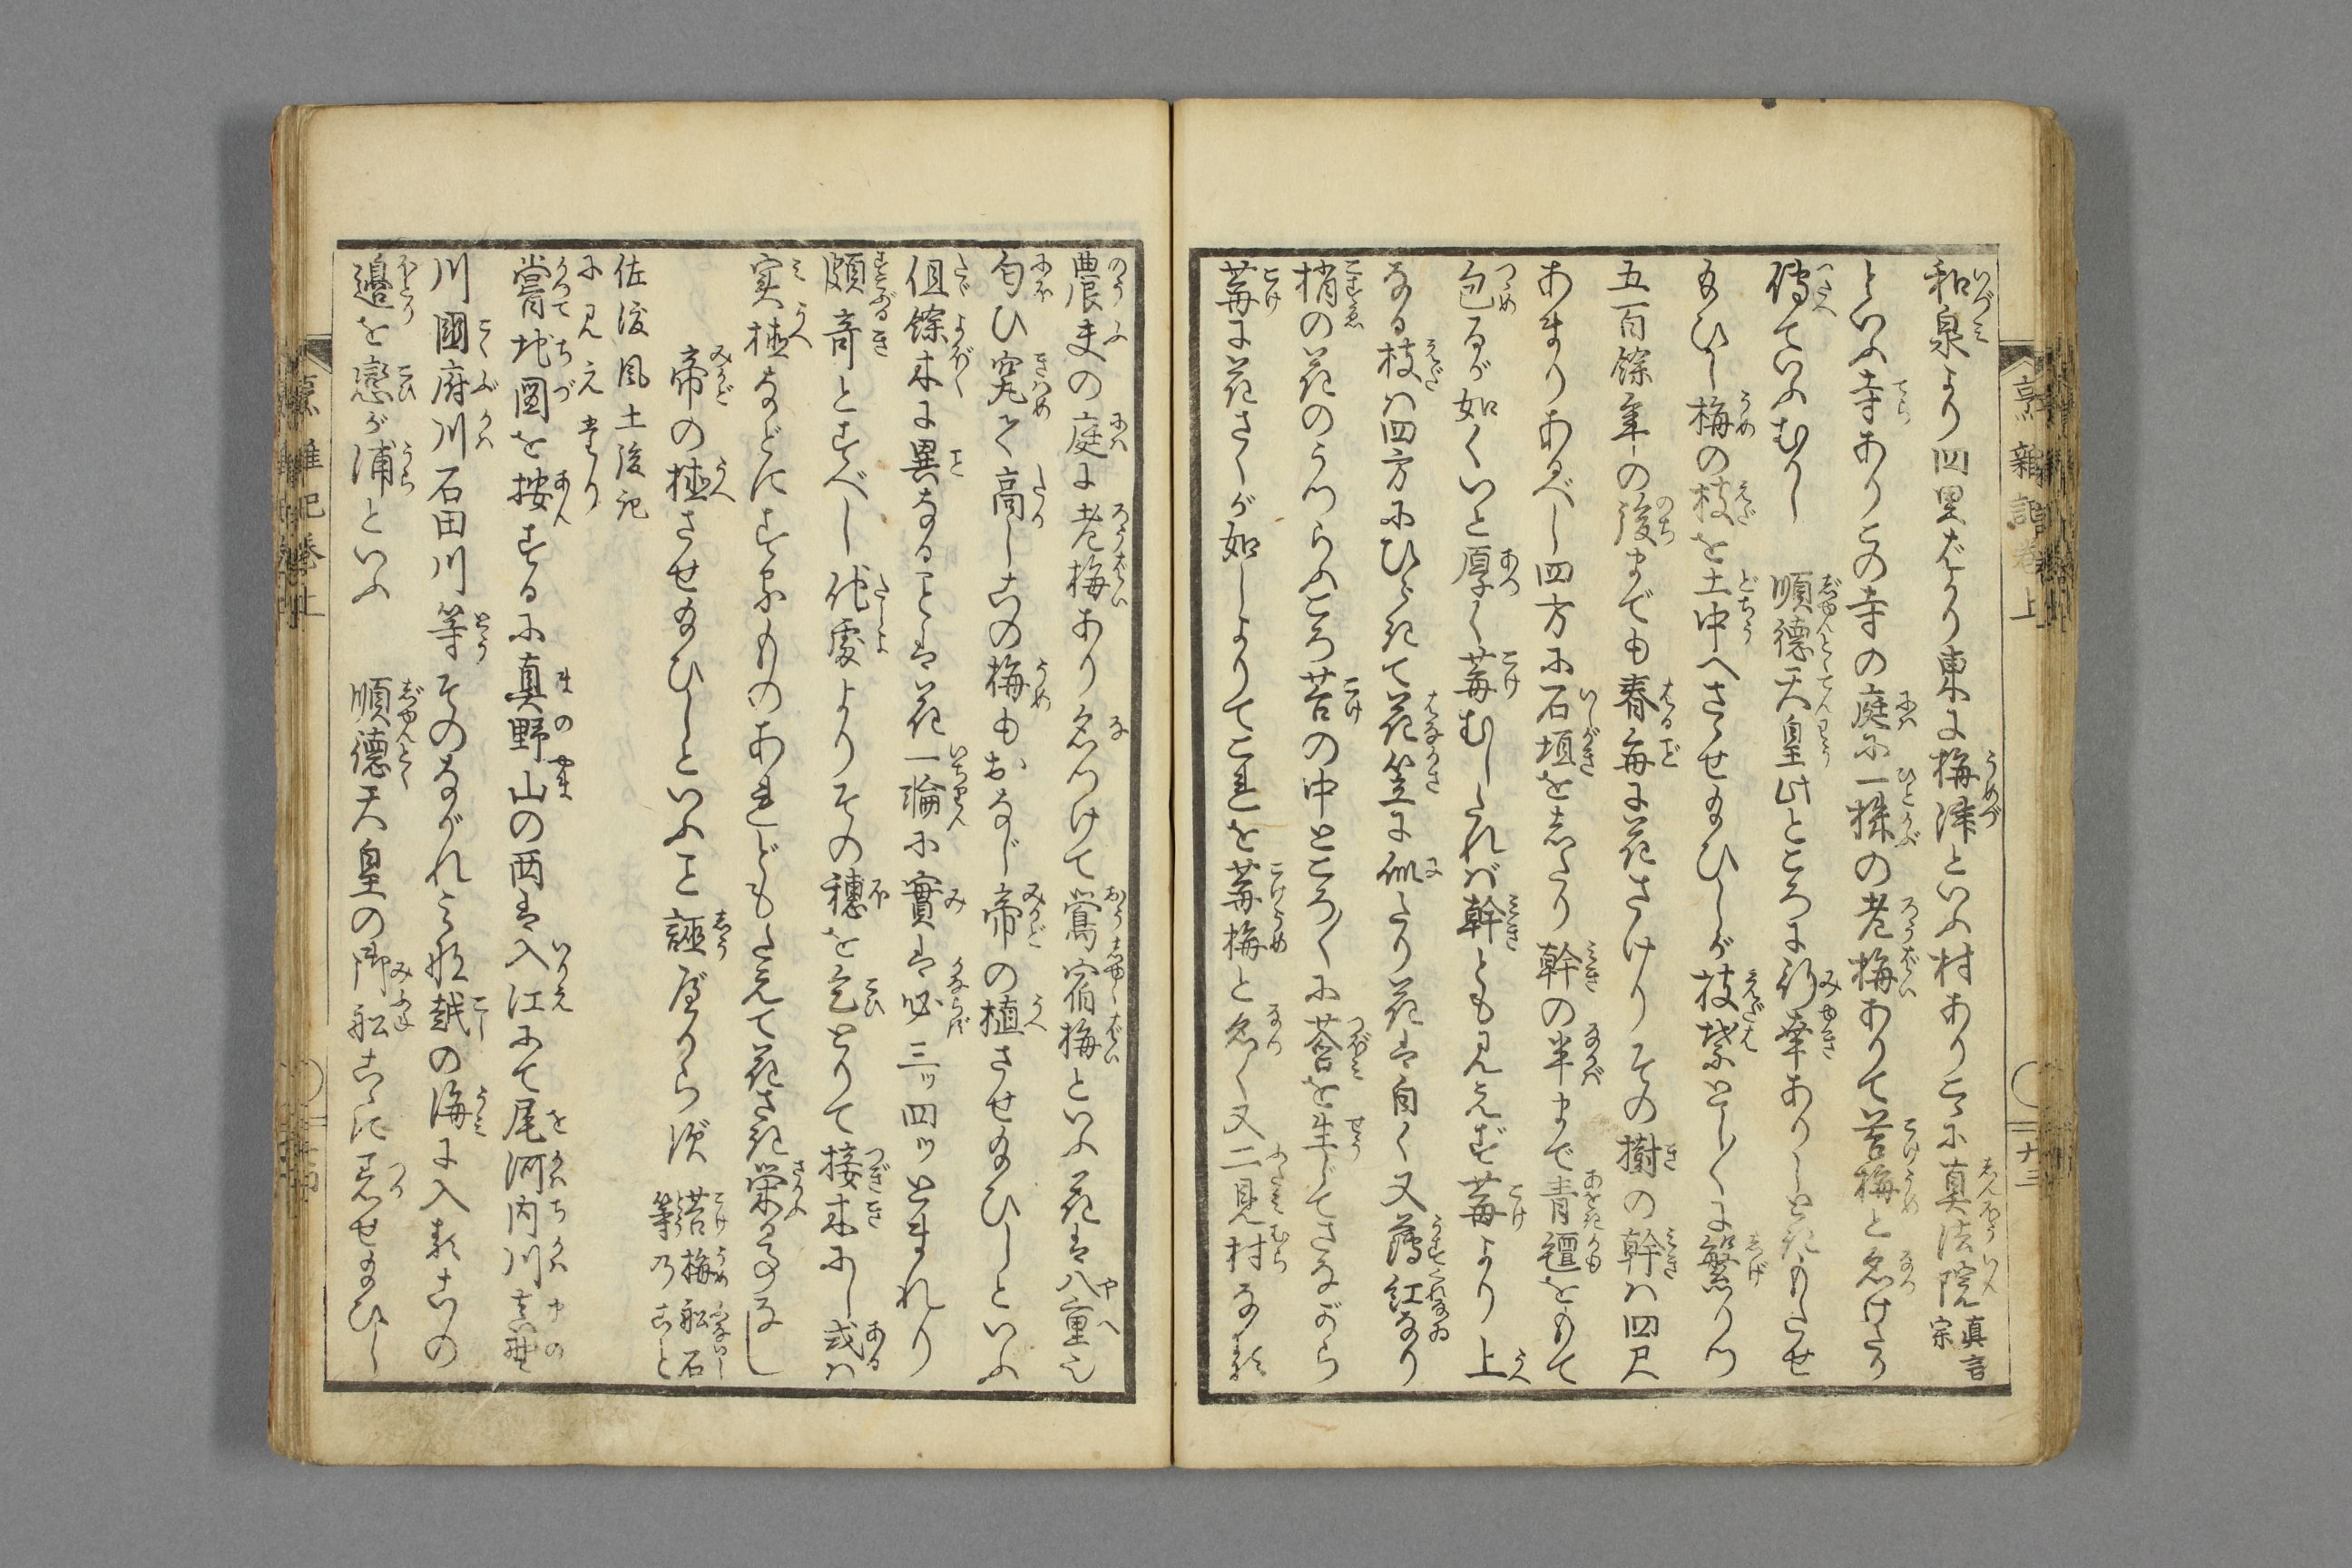 和泉より四里ばかり東に梅津といふ村ありこゝに真法院真言宗
といふ寺ありこの寺の庭に一株の老梅ありて苔梅と名けたり
傳ていふむかし 順徳天皇此ところに行幸ありしときもたせ
給ひし梅の枝を土中へさゝせ給ひしが枝葉としく〳〵に繁りつ
五百餘年の後までも春毎に花さけりその樹の幹は四尺
あまりあるべし四方に石垣をしたり幹の半まで青氊をもて
包るが如くいと厚く苺むしたれば幹とも見えず苺より上
なる枝は四方にひらきて花笠に似たり花は白く又薄紅なり
梢の花のうつらふころ苔の中ところ〴〵に莟を生じてさながら
苺に花さくが如しよりてこれを苺梅と名く又二見村なる
農夫の庭に老梅あり名つけて鶯宿梅といふ花は八重也
匂ひ究て高しこの梅もおなじ帝の植させ給ひしといふ
但餘木に異なることは花一輪に實は必三ツ四ツとまれり
頗奇とすべし他處よりその穂を乞とりて接木にし或は
実植などにするものあれどもたえて花さき栄る事なし
帝の植させ給ひしといふこと誣べからず 苔梅船石等のこと
佐渡風土後記
に見えたり
嘗地図を按ずるに真野山の西は入江にて尾河内川真野
川國府川石田川等そのながれみな越の海に入るこの
邉を戀が浦といふ 順徳天皇の御船こゝに着せ給ひし
烹雜記卷上
十三
烹雜記卷上